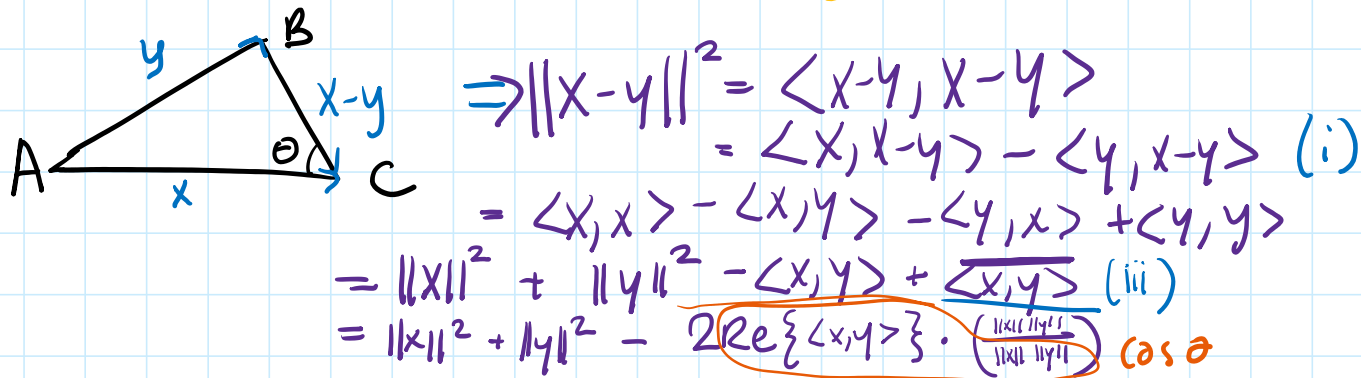 B
y
x-y
θ
A
C
x
⇒||x-y||² = <x-y, x-y>
= <x, x-y> - <y, x-y> (i)
= <x, x> - <x, y> - <y, x> + <y, y>
= ||x||² + ||y||² - <x, y> + \overline{<x, y>} (iii)
= ||x||² + ||y||² - 2Re{<x,y>} · (||x|| ||y|| / ||x|| ||y||) cos θ